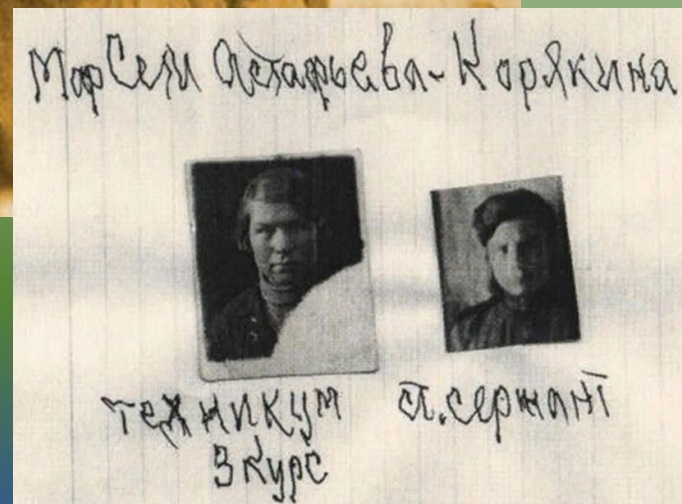 МарСели Астафьева-Корякина
техникум
3 курс
ст. сержант